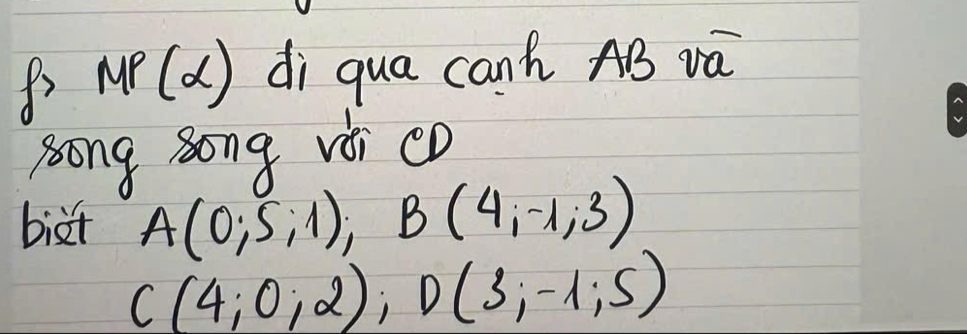 f> MP (α) đi qua cạnh AB và
song song với CD
biết A(0;5;1); B(4;-1;3)
C(4;0;2); D(3;-1;5)